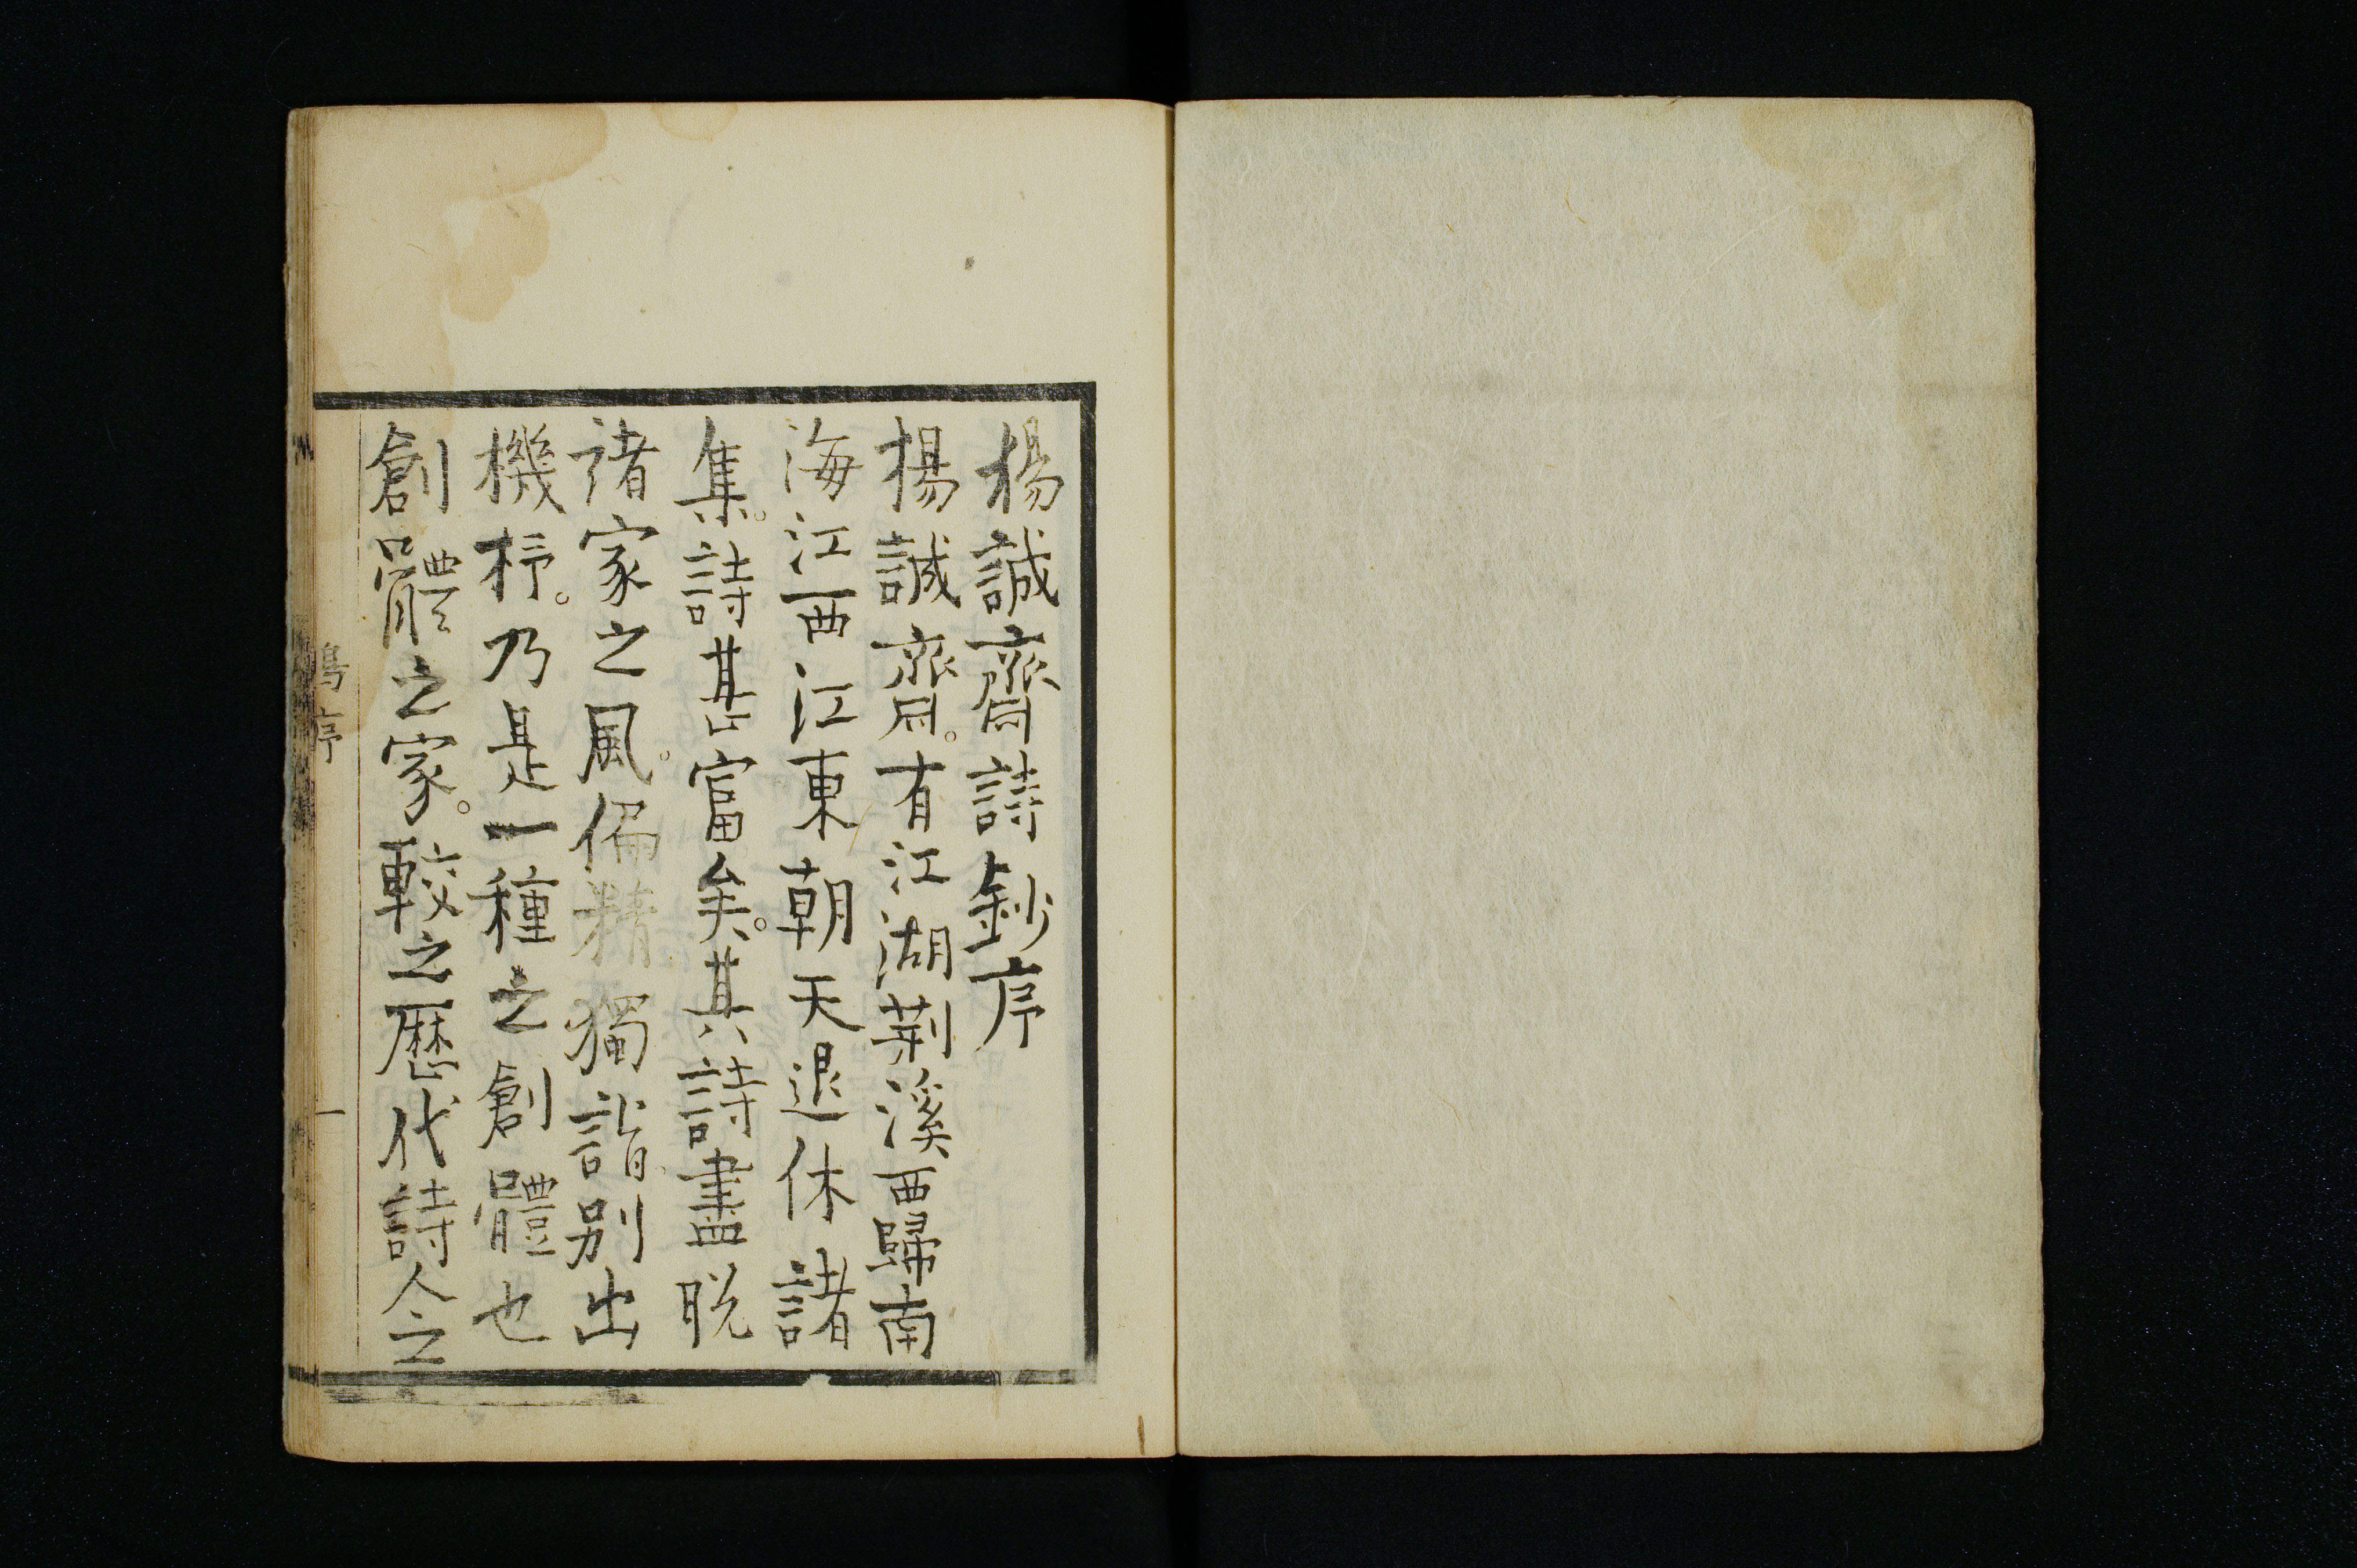 楊誠齋詩鈔序
楊誠齋。有江湖荊溪西歸南
海江西江東朝天退休諸
集。詩甚富矣。其詩盡脫
諸家之風。偏精獨詣。別出
機杼。乃是一種之創體也
創體之家。較之歷代詩人之
序
一